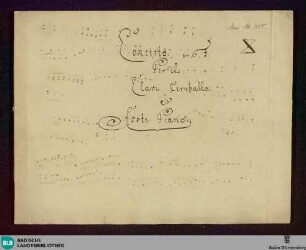 Concerto
Per il
Clavi Cimbalo
o
forte Piano
BLB
BADISCHE
LANDESBIBLIOTHEK
Baden-Württemberg